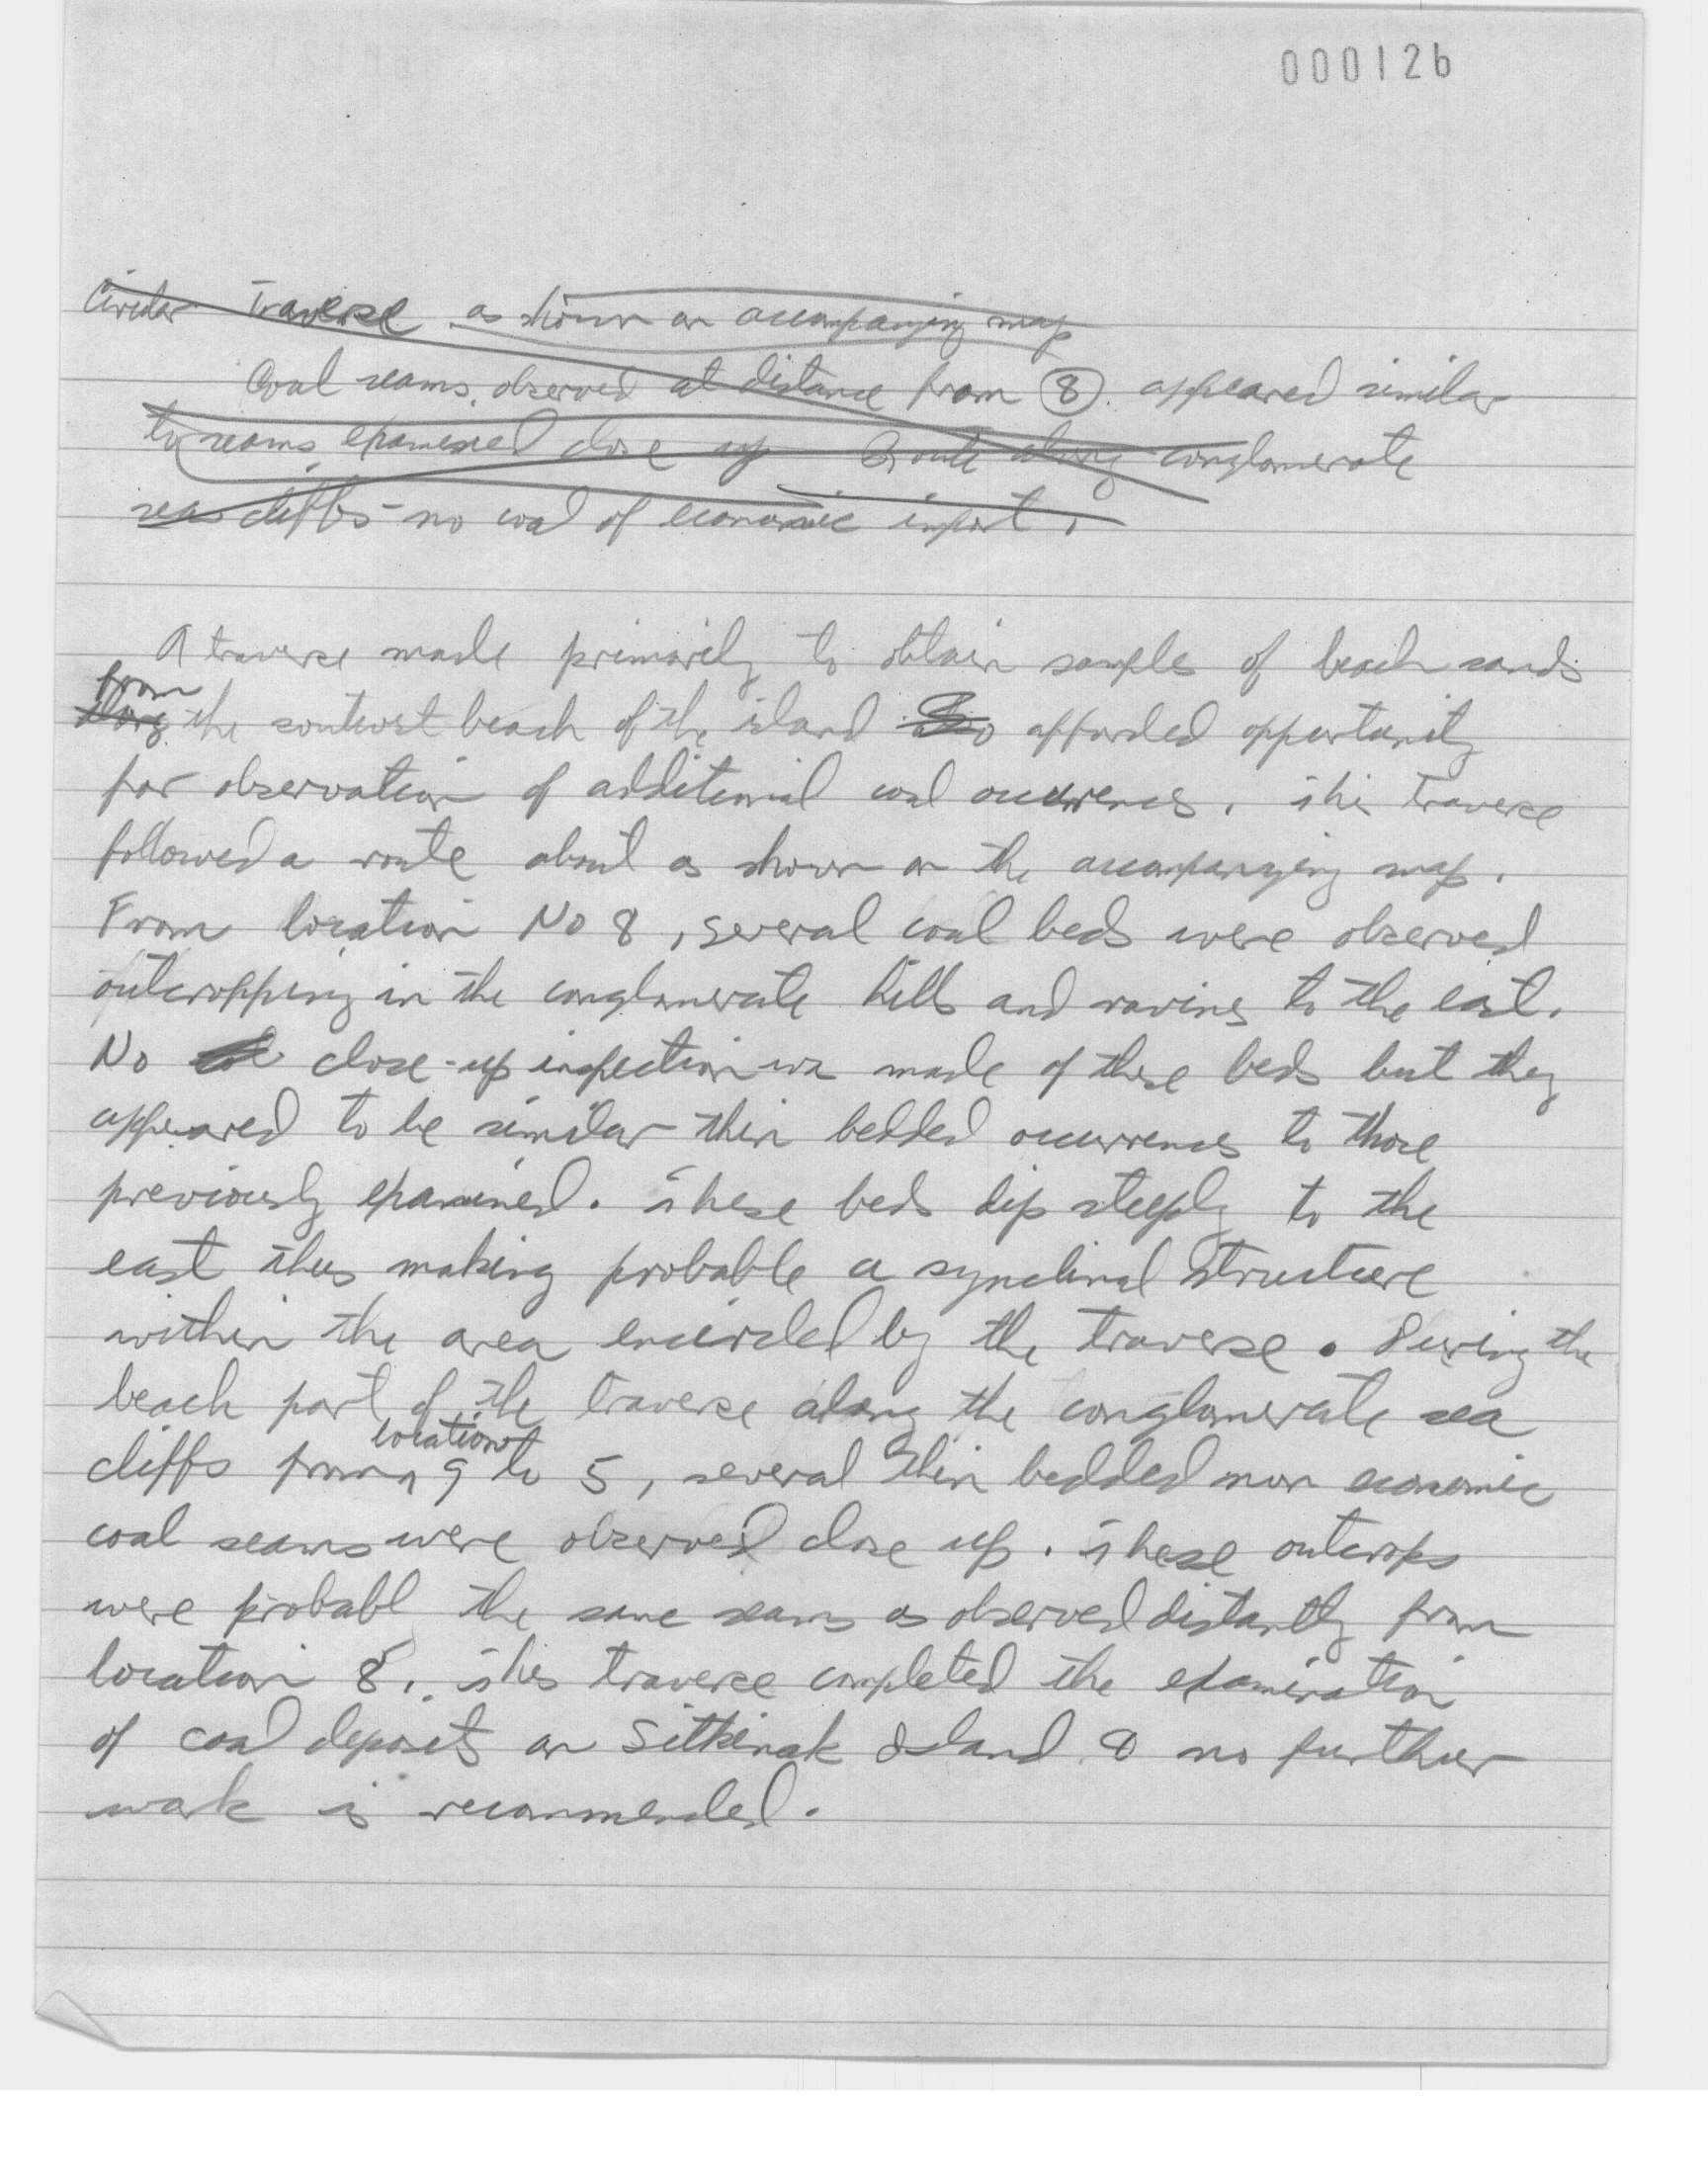 000126
Circular Traverse as shown on accompanying map
Coal seams observed at distance from 8. appeared similar
to seams examined close up Route along conglomerate
sea cliffs - no coal of economic import.
A traverse made primarily to obtain samples of beach sands
from
along the southwest beach of the island also afforded opportunity
for observation of additional coal occurrences. This traverse
followed a route about as shown on the accompanying map.
From location No 8, several coal beds were observed
outcropping in the conglomerate hills and ravines to the east.
No close-up inspection was made of these beds but they
appeared to be similar thin bedded occurrences to those
previously examined. These beds dip steeply to the
east thus making probable a synclinal structure
within the area encircled by the traverse. During the
beach part of the traverse along the conglomerate sea
locations
cliffs from 9 to 5, several thin bedded non economic
coal seams were observed close up. These outcrops
were probabl the same seams as observed distantly from
location 8. This traverse completed the examination
of coal deposits on Sitkinak Island & no further
work is recommended.